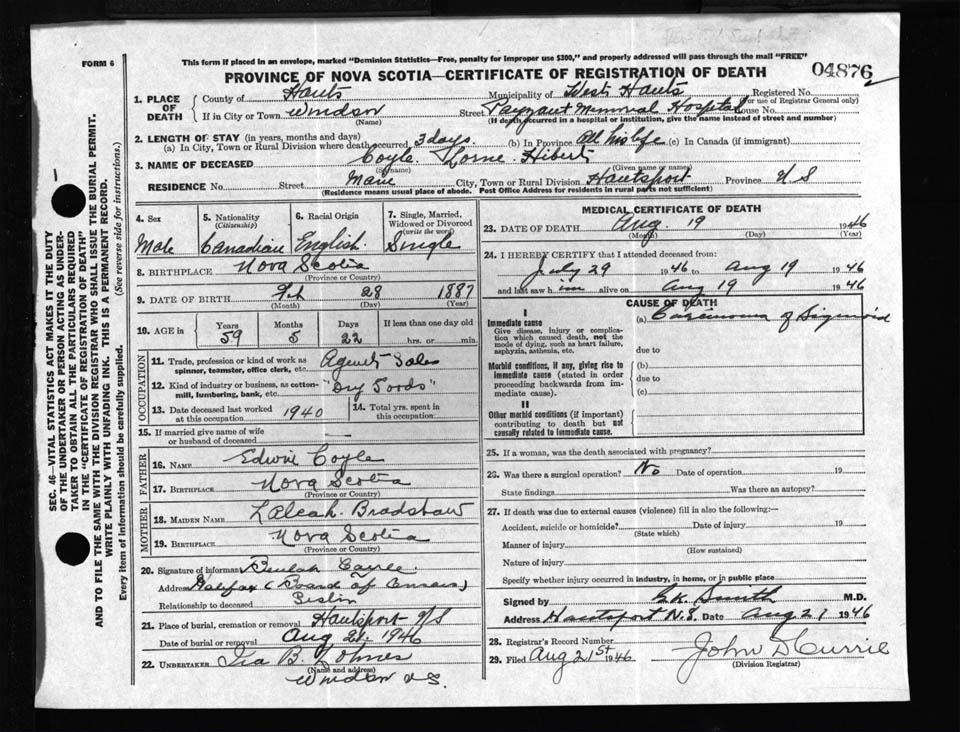 FORM 6
This form if placed in an envelope, marked "Dominion Statistics—Free, penalty for improper use $300," and properly addressed will pass through the mail "FREE"
PROVINCE OF NOVA SCOTIA—CERTIFICATE OF REGISTRATION OF DEATH 04876
1. PLACE OF DEATH County of Hants Municipality of West Hants Registered No.
(For use of Registrar General only)
If in City or Town Windsor Street Payzant Memorial Hospital House No.
(Name) (If death occurred in a hospital or institution, give the name instead of street and number)
2. LENGTH OF STAY (in years, months and days)
(a) In City, Town or Rural Division where death occurred 3 days. (b) In Province All his life (c) In Canada (if immigrant)
3. NAME OF DECEASED Coyle. Lorne. Hibert
(Surname) (Given name or names)
RESIDENCE No. Street Main City, Town or Rural Division Hantsport Province N S
(Residence means usual place of abode. Post Office Address for residents in rural parts not sufficient)
4. Sex Male
5. Nationality (Citizenship) Canadian
6. Racial Origin English.
7. Single, Married, Widowed or Divorced (write the word) Single
8. BIRTHPLACE Nova Scotia
(Province or Country)
9. DATE OF BIRTH Feb 28 1887
(Month) (Day) (Year)
10. AGE in Years 59 Months 5 Days 22 If less than one day old hrs. or min.
OCCUPATION
11. Trade, profession or kind of work as spinner, teamster, office clerk, etc. Agent Sales
12. Kind of industry or business, as cotton-mill, lumbering, bank, etc. "Dry Goods"
13. Date deceased last worked at this occupation 1940 14. Total yrs. spent in this occupation
15. If married give name of wife or husband of deceased —
FATHER
16. NAME Edwin Coyle
17. BIRTHPLACE Nova Scotia
(Province or Country)
MOTHER
18. MAIDEN NAME Bradshaw
19. BIRTHPLACE Nova Scotia
(Province or Country)
20. Signature of informant Beulah
Address Halifax (Board of
Relationship to deceased
21. Place of burial, cremation or removal Hantsport N/S
Date of burial or removal Aug 21. 1946
22. UNDERTAKER Ira B.
(Name and address)
Windsor N.S.
MEDICAL CERTIFICATE OF DEATH
23. DATE OF DEATH Aug. 19 1946
(Month) (Day) (Year)
24. I HEREBY CERTIFY that I attended deceased from:
July 29 1946 to Aug 19 1946
and last saw him alive on Aug 19 1946
CAUSE OF DEATH
I
Immediate cause
Give disease, injury or complication which caused death, not the mode of dying, such as heart failure, asphyxia, asthenia, etc.
(a) Carcinoma of Sigmoid
due to
Morbid conditions, if any, giving rise to immediate cause (stated in order proceeding backwards from immediate cause).
(b)
due to
(c)
II
Other morbid conditions (if important) contributing to death but not causally related to immediate cause.
25. If a woman, was the death associated with pregnancy?
26. Was there a surgical operation? No Date of operation 19
State findings Was there an autopsy?
27. If death was due to external causes (violence) fill in also the following:—
Accident, suicide or homicide? Date of injury 19
(State which)
Manner of injury
(How sustained)
Nature of injury
Specify whether injury occurred in industry, in home, or in public place
Signed by Smith M.D.
Address Hantsport N.S. Date Aug 21 1946
28. Registrar's Record Number
29. Filed Aug 21st 1946 John D Currie
(Division Registrar)
SEC. 46—VITAL STATISTICS ACT MAKES IT THE DUTY
OF THE UNDERTAKER OR PERSON ACTING AS UNDER-
TAKER TO OBTAIN ALL THE PARTICULARS REQUIRED
IN THE "CERTIFICATE OF REGISTRATION OF DEATH"
AND TO FILE THE SAME WITH THE DIVISION REGISTRAR WHO SHALL ISSUE THE BURIAL PERMIT.
WRITE PLAINLY WITH UNFADING INK. THIS IS A PERMANENT RECORD.
Every item of information should be carefully supplied. (See reverse side for instructions.)